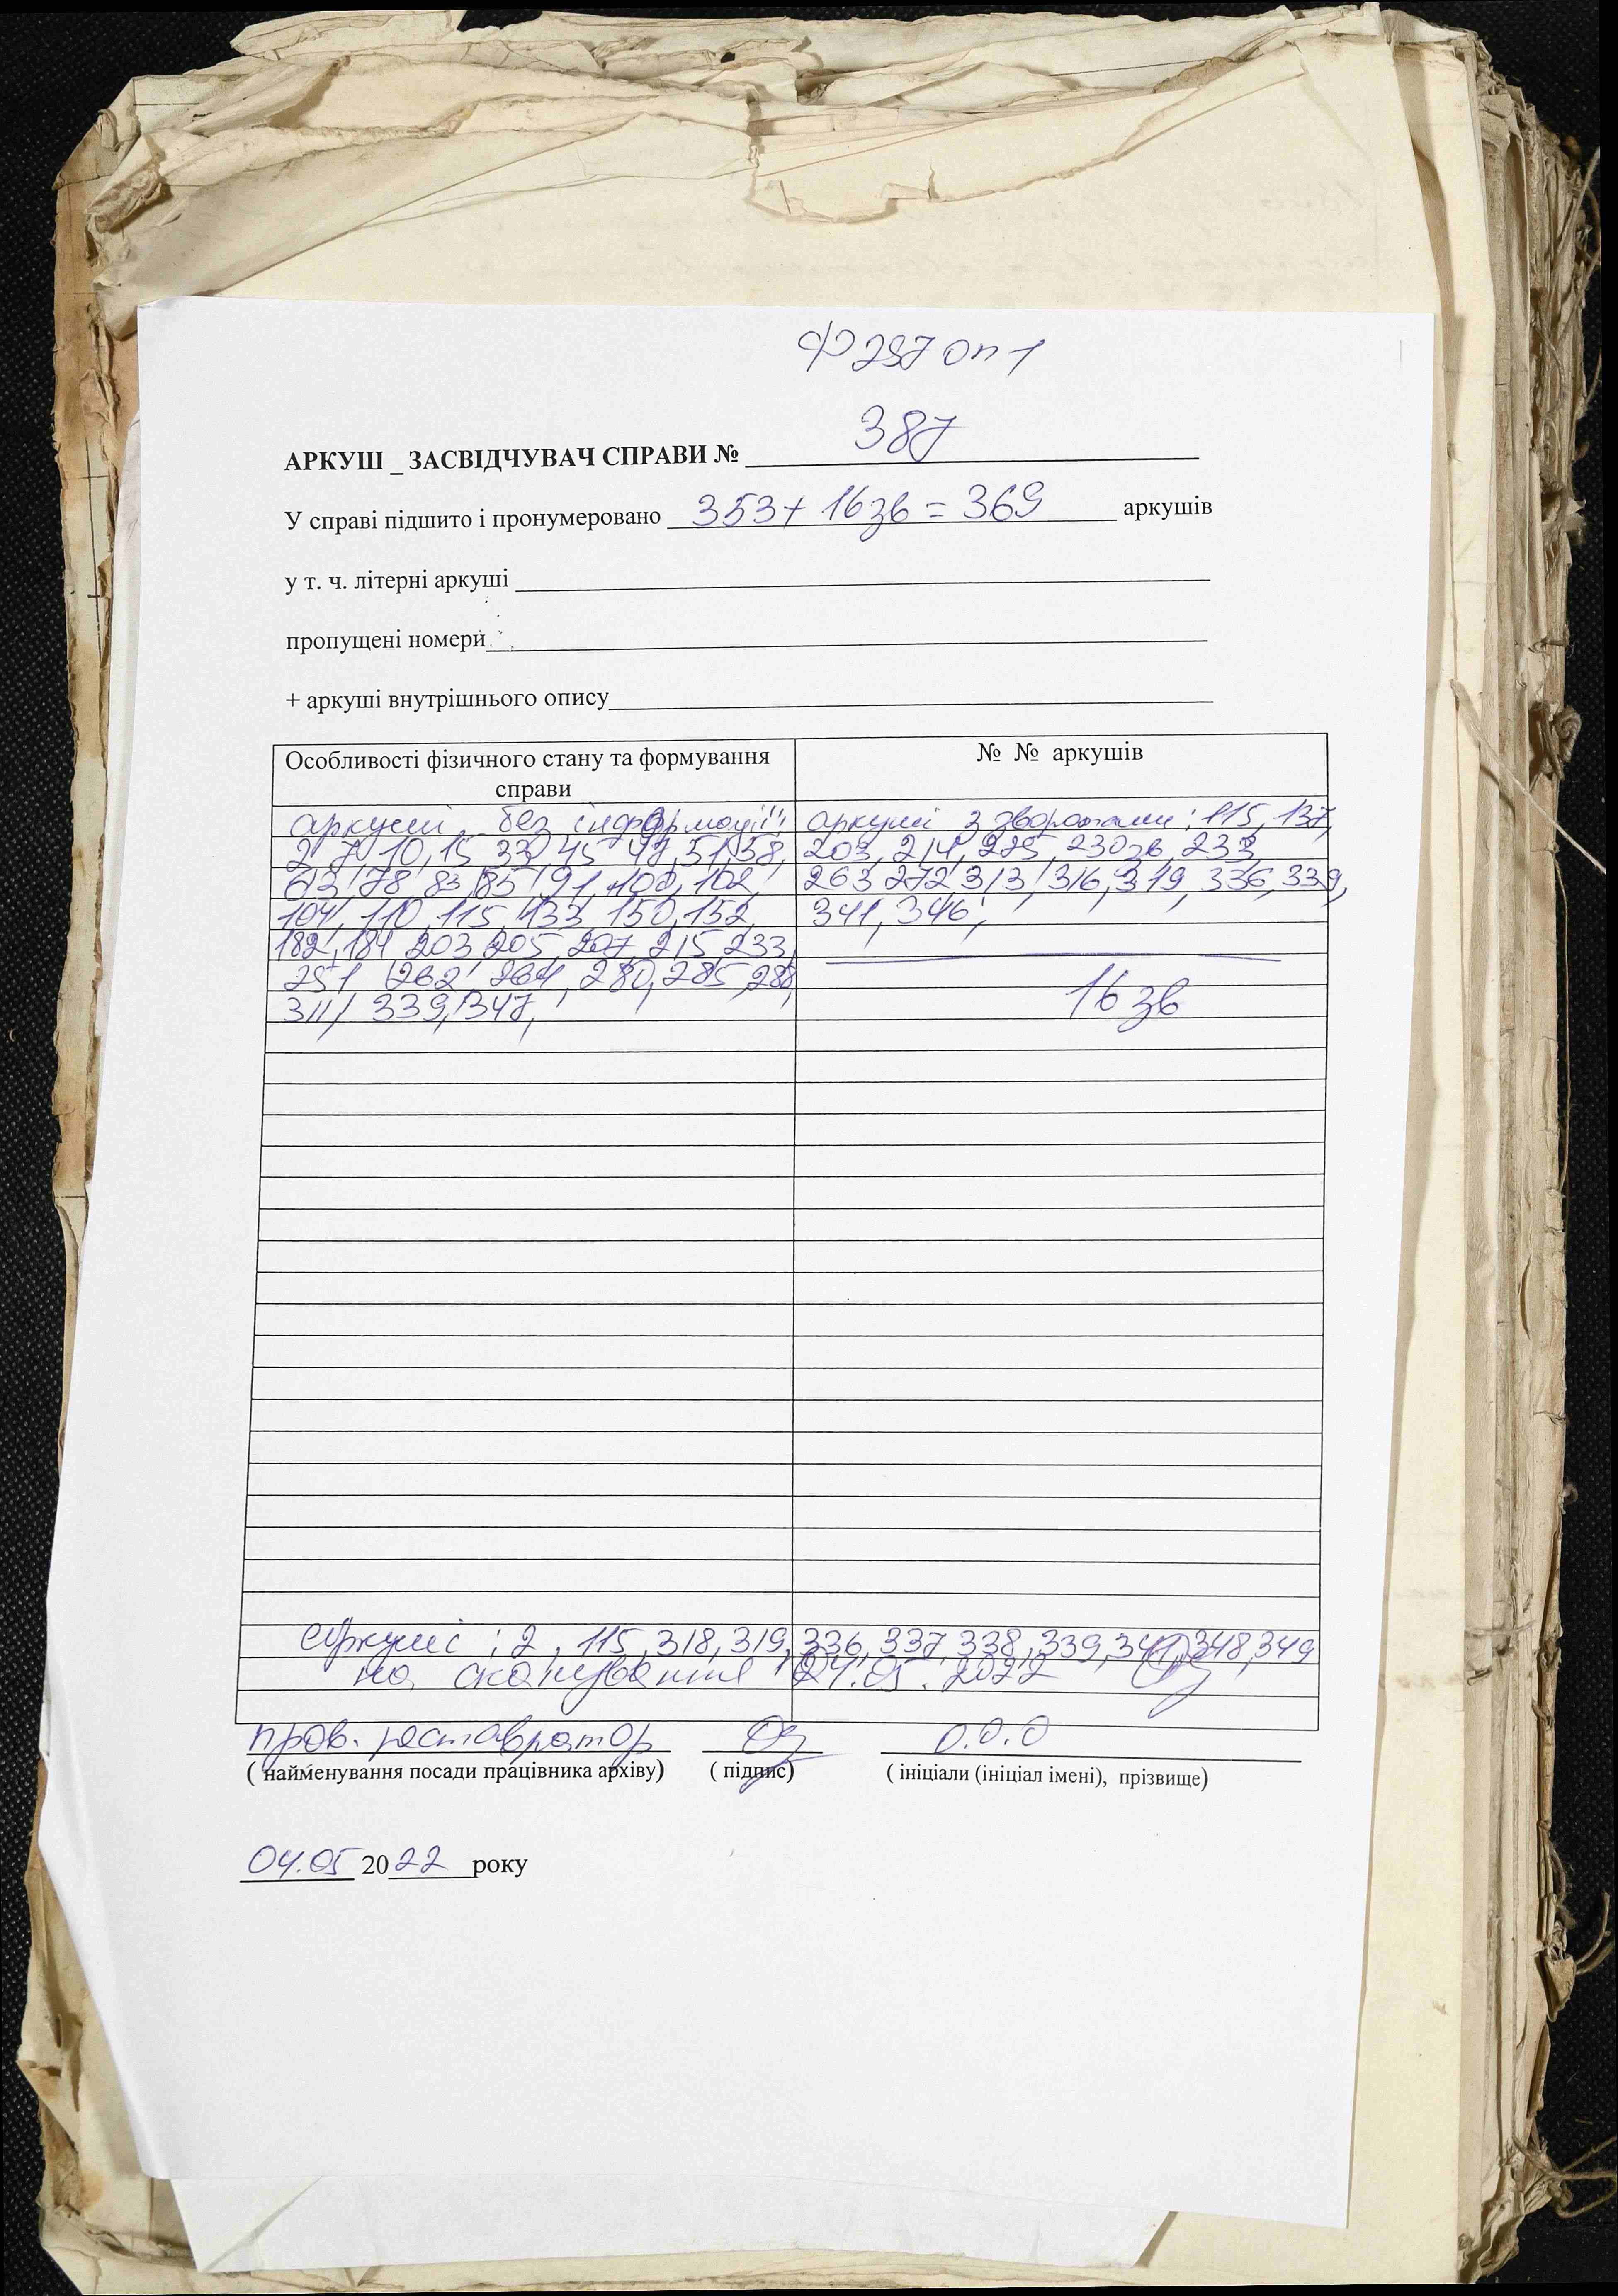 Ф 297 оп 1
387
АРКУШ _ ЗАСВІДЧУВАЧ СПРАВИ №
У справі підшито і пронумеровано 353 + 16 зв = 369 аркушів
у т. ч. літерні аркуші
пропущені номери
+ аркуші внутрішнього опису
Особливості фізичного стану та формування справи
№ № аркушів
аркуші без інформації:
2, 7, 10, 15, 33, 45, 47, 51, 58,
63, 78, 83, 85, 91, 100, 102,
104, 110, 115, 133, 150, 152,
182, 184, 203, 205, 207, 215, 233,
251, 262, 264, 280, 285, 288,
311, 339, 347,
аркуші з зворотами: 115, 137,
203, 214, 225, 230 зв, 233,
263, 272, 313, 316, 319, 336, 339,
341, 346,
16 зв
Аркуші: 2, 115, 318, 319, 336, 337, 338, 339, 341, 348, 349
на сканування 24.05.2022
пров. реставратор
о.о.о
( найменування посади працівника архіву) ( підпис) ( ініціали (ініціал імені), прізвище)
04.05 2022 року